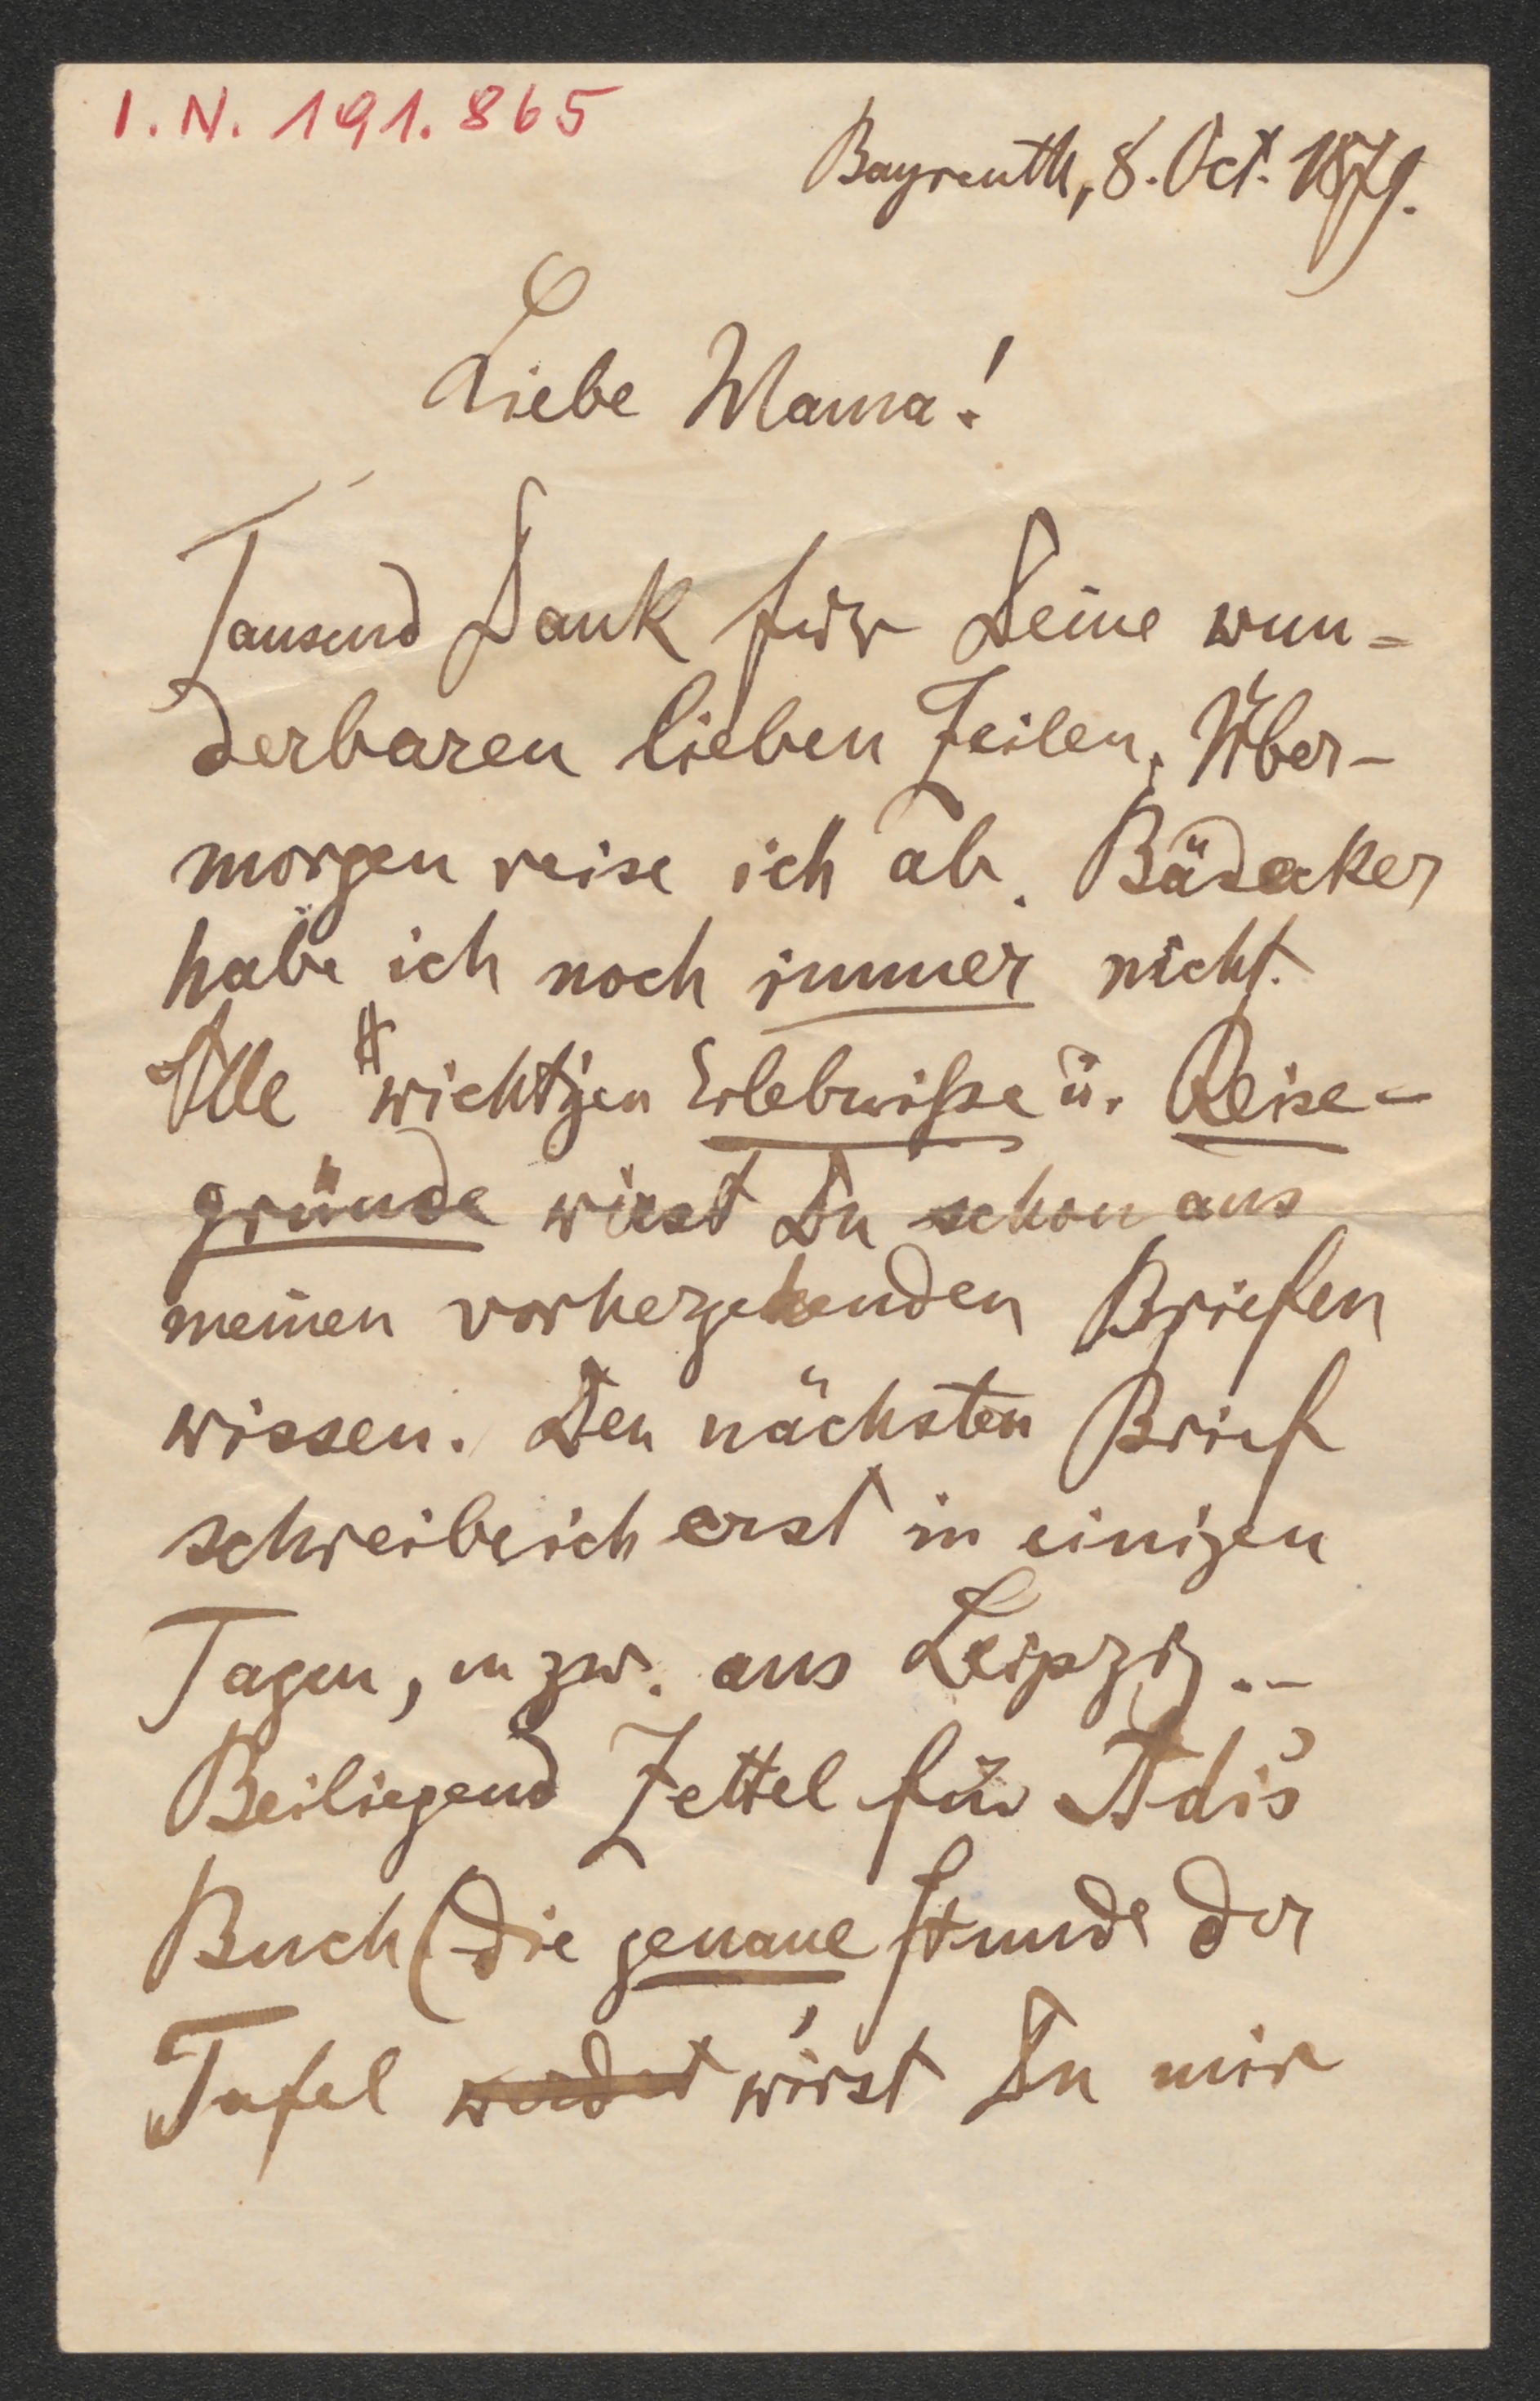 I.N. 191.865
Bayreuth, 8. Oct. 1879.
Liebe Mama!
Tausend Dank für Deine wun=
derbaren lieben Zeilen. Über-
morgen reise ich ab. Bädecker
habe ich noch immer nicht.
Alle wichtigen Erlebniße u. Reise-
gründe wirst Du schon aus
meinen vorhergehenden Briefen
wissen. Den nächsten Brief
schreibe ich erst in einigen
Tagen, u zw. aus Leipzig.–
Beiliegend Zettel für Adi's
Buch (die genaue Stunde der
Tafel werdet wirst Du mir